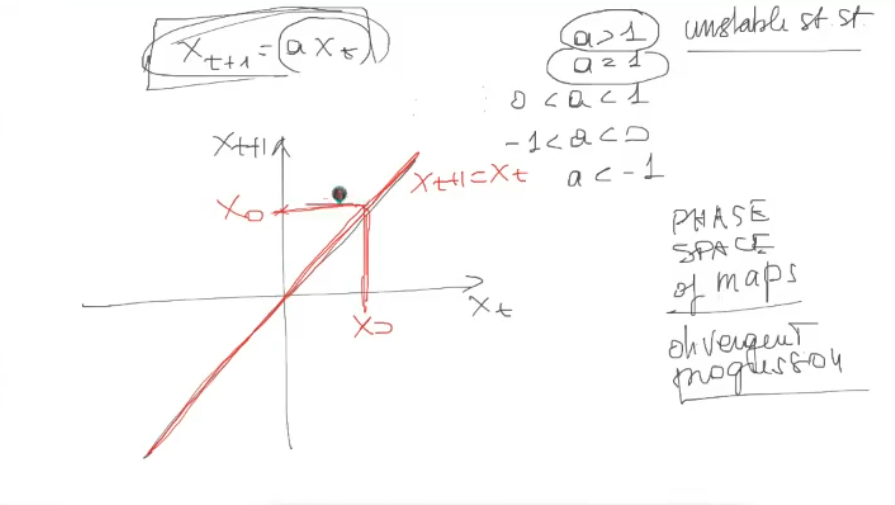 x_{t+1} = (a x_t)
a > 1 unstable st. st.
a = 1
0 < a < 1
-1 < a < 0
a < -1
x_{t+1}
x_0
x_{t+1} = x_t
x_t
x_0
PHASE
SPACE
of maps
divergent
progression